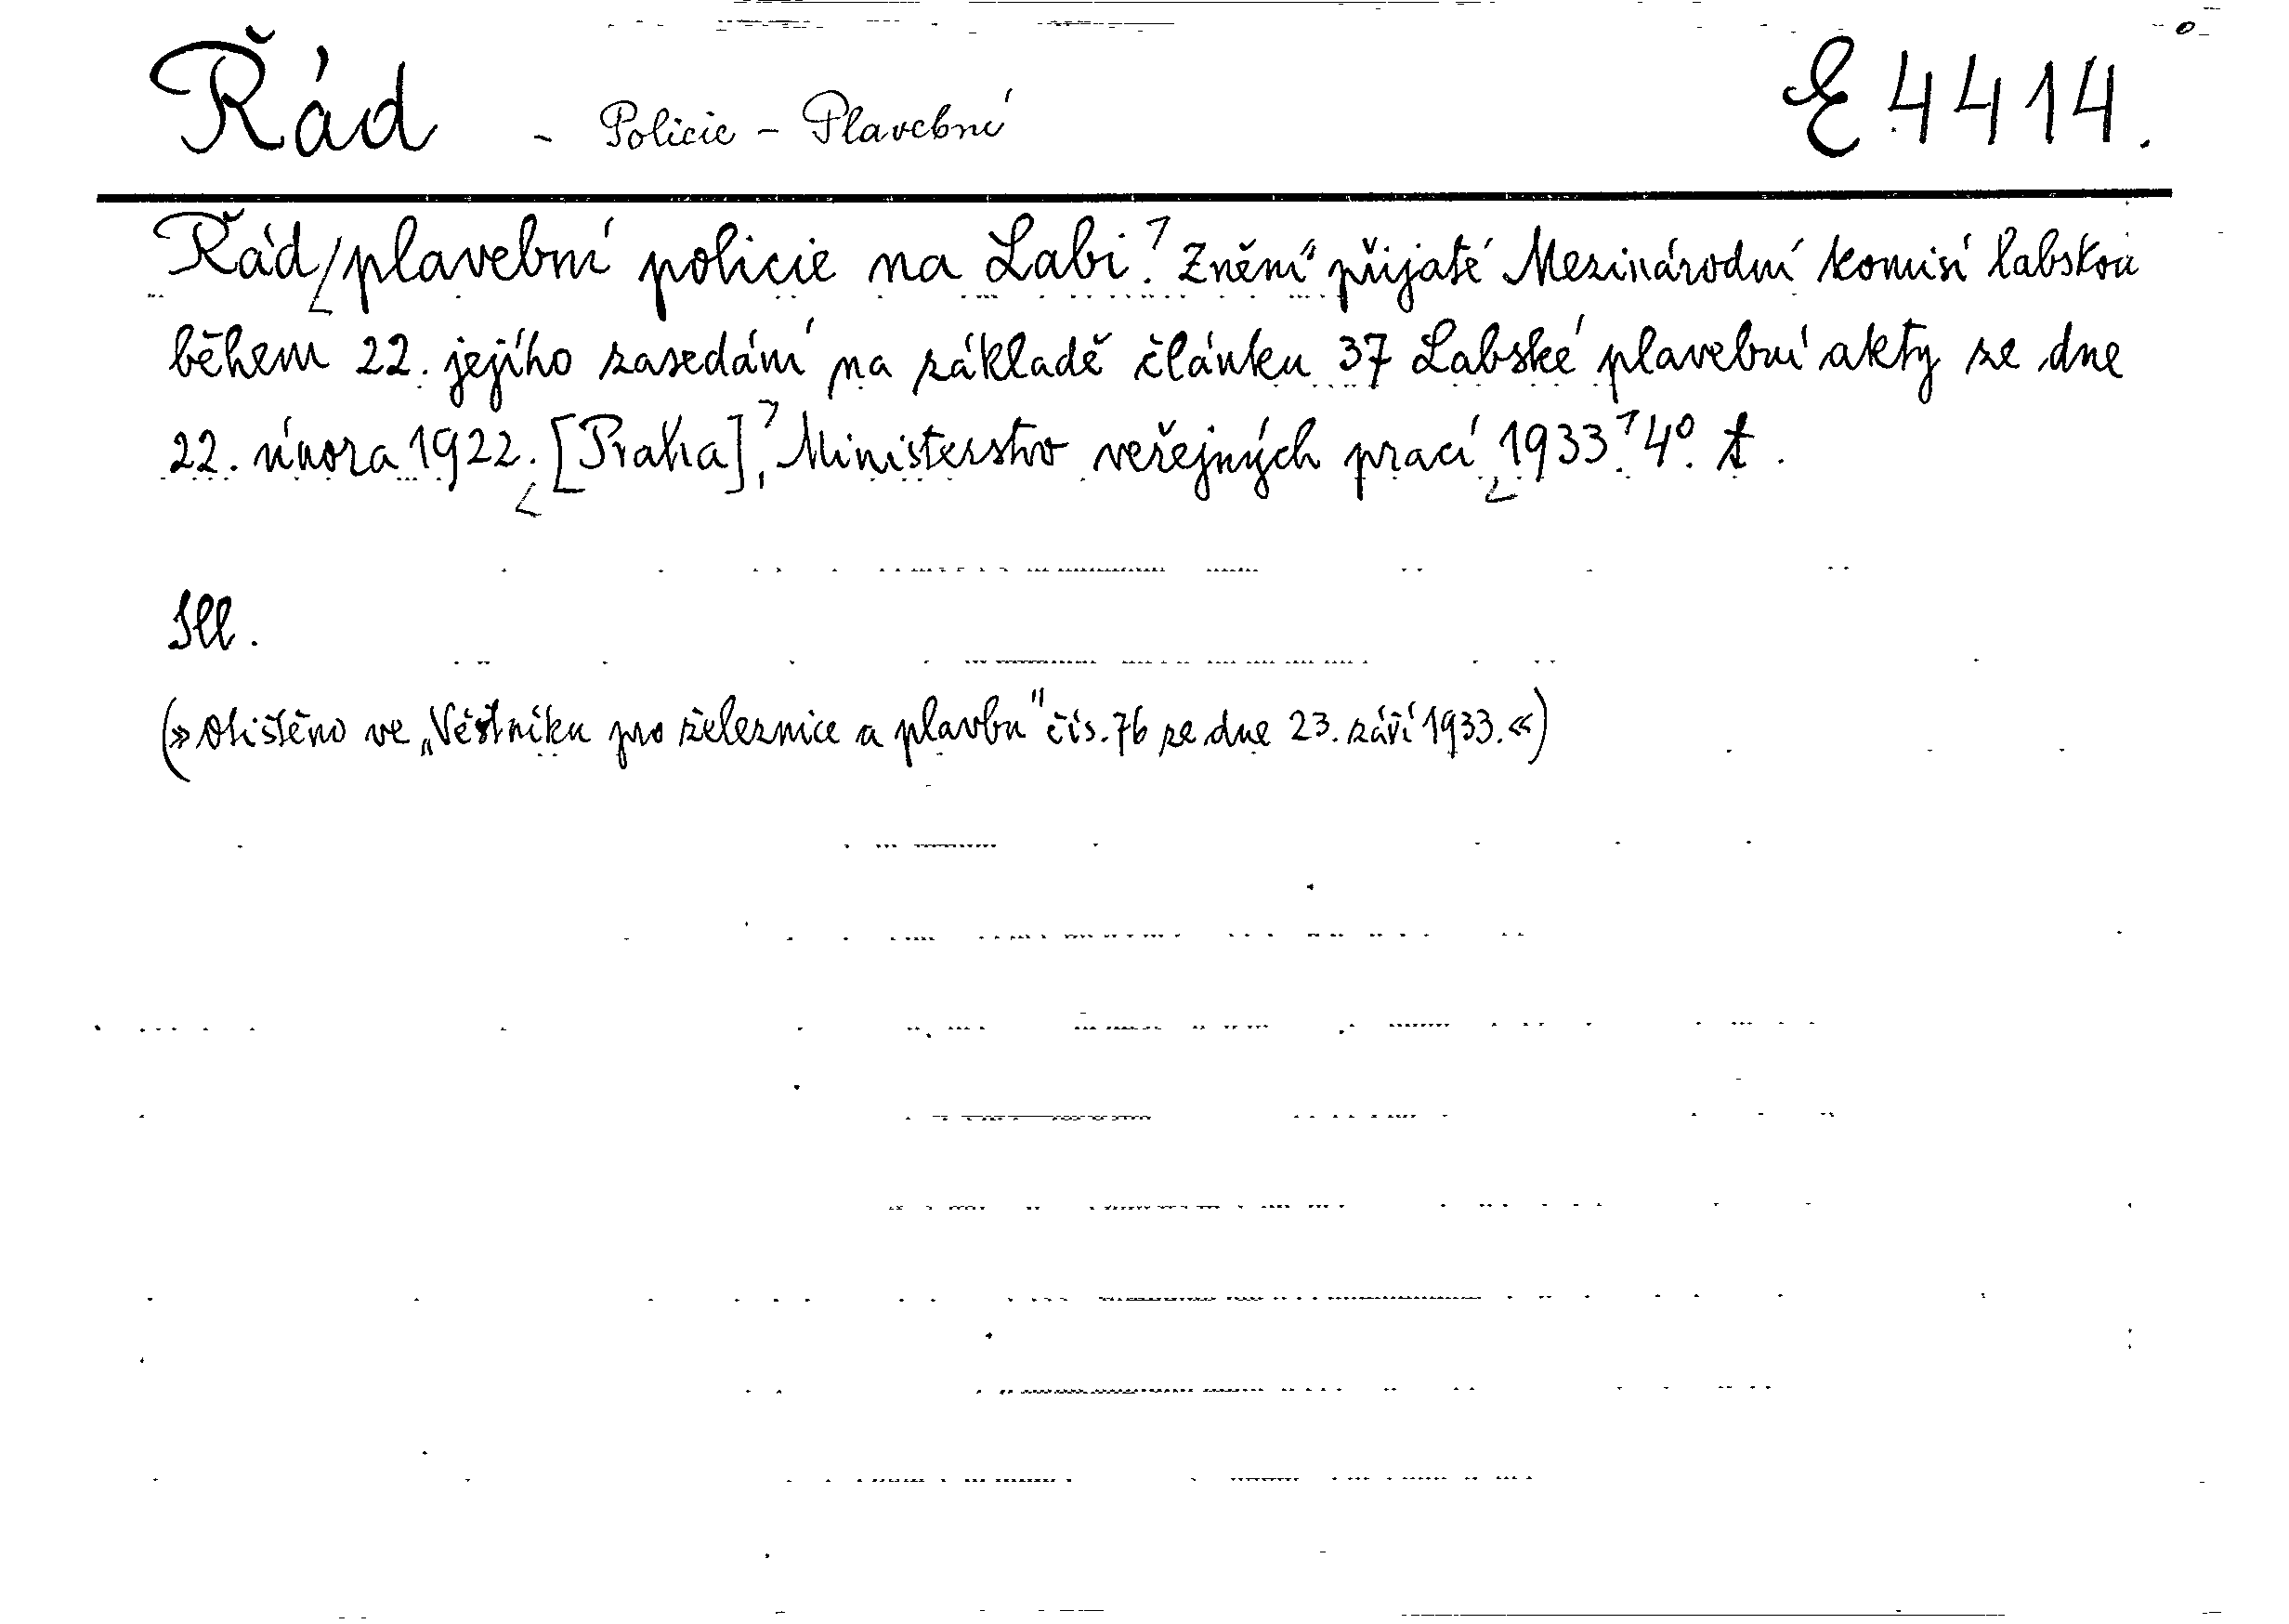 Řád - Policie - Plavební E 4414.
Řád plavební policie na Labi. Znění přijaté Mezinárodní komisí labskou
během 22. jejího zasedání na základě článku 37 Labské plavební akty ze dne
22. února 1922. [Praha], Ministerstvo veřejných prací 1933. 4°.
Ill.
(»Otištěno ve „Věstníku pro železnice a plavbu" čís. 76 ze dne 23. září 1933.«)